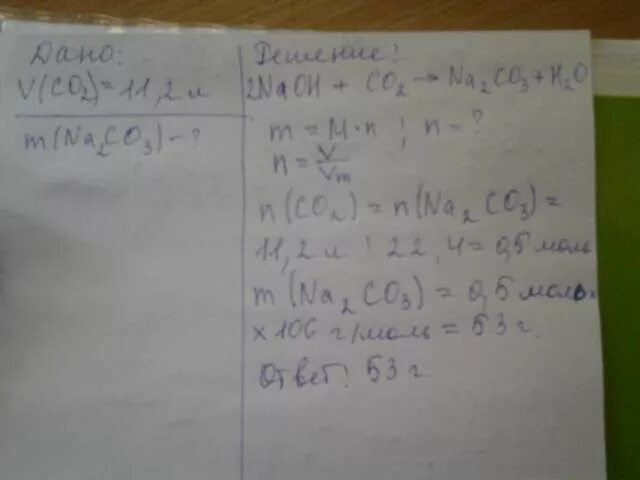 Дано:
V(CO₂)=11,2 л
m(Na₂CO₃)-?
Решение!
2NaOH + CO₂ → Na₂CO₃ + H₂O
m = M·n ; n - ?
n = V/Vm
n(CO₂) = n(Na₂CO₃) =
11,2 л : 22,4 = 0,5 моль
m(Na₂CO₃) = 0,5 моль·
× 106 г/моль = 53 г.
Ответ: 53 г